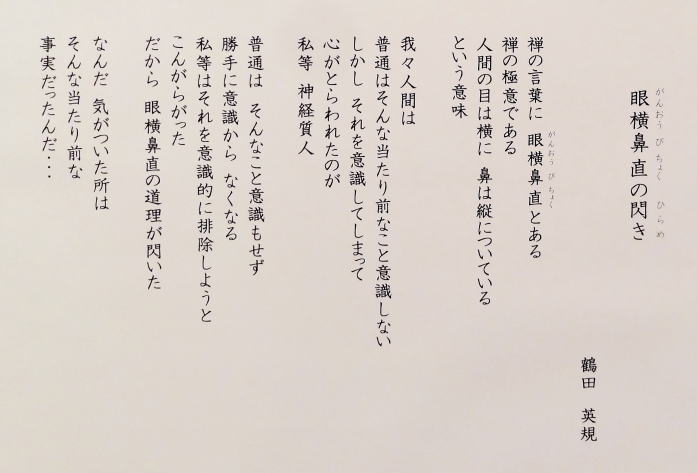 眼横鼻直の閃き
がんおう び ちょく ひらめ
鶴田 英規
禅の言葉に 眼横鼻直とある
がんおう び ちょく
禅の極意である
人間の目は横に 鼻は縦についている
という意味
我々人間は
普通はそんな当たり前なこと意識しない
しかし それを意識してしまって
心がとらわれたのが
私等 神経質人
普通は そんなこと意識もせず
勝手に意識から なくなる
私等はそれを意識的に排除しようと
こんがらがった
だから 眼横鼻直の道理が閃いた
なんだ 気がついた所は
そんな当たり前な
事実だったんだ・・・